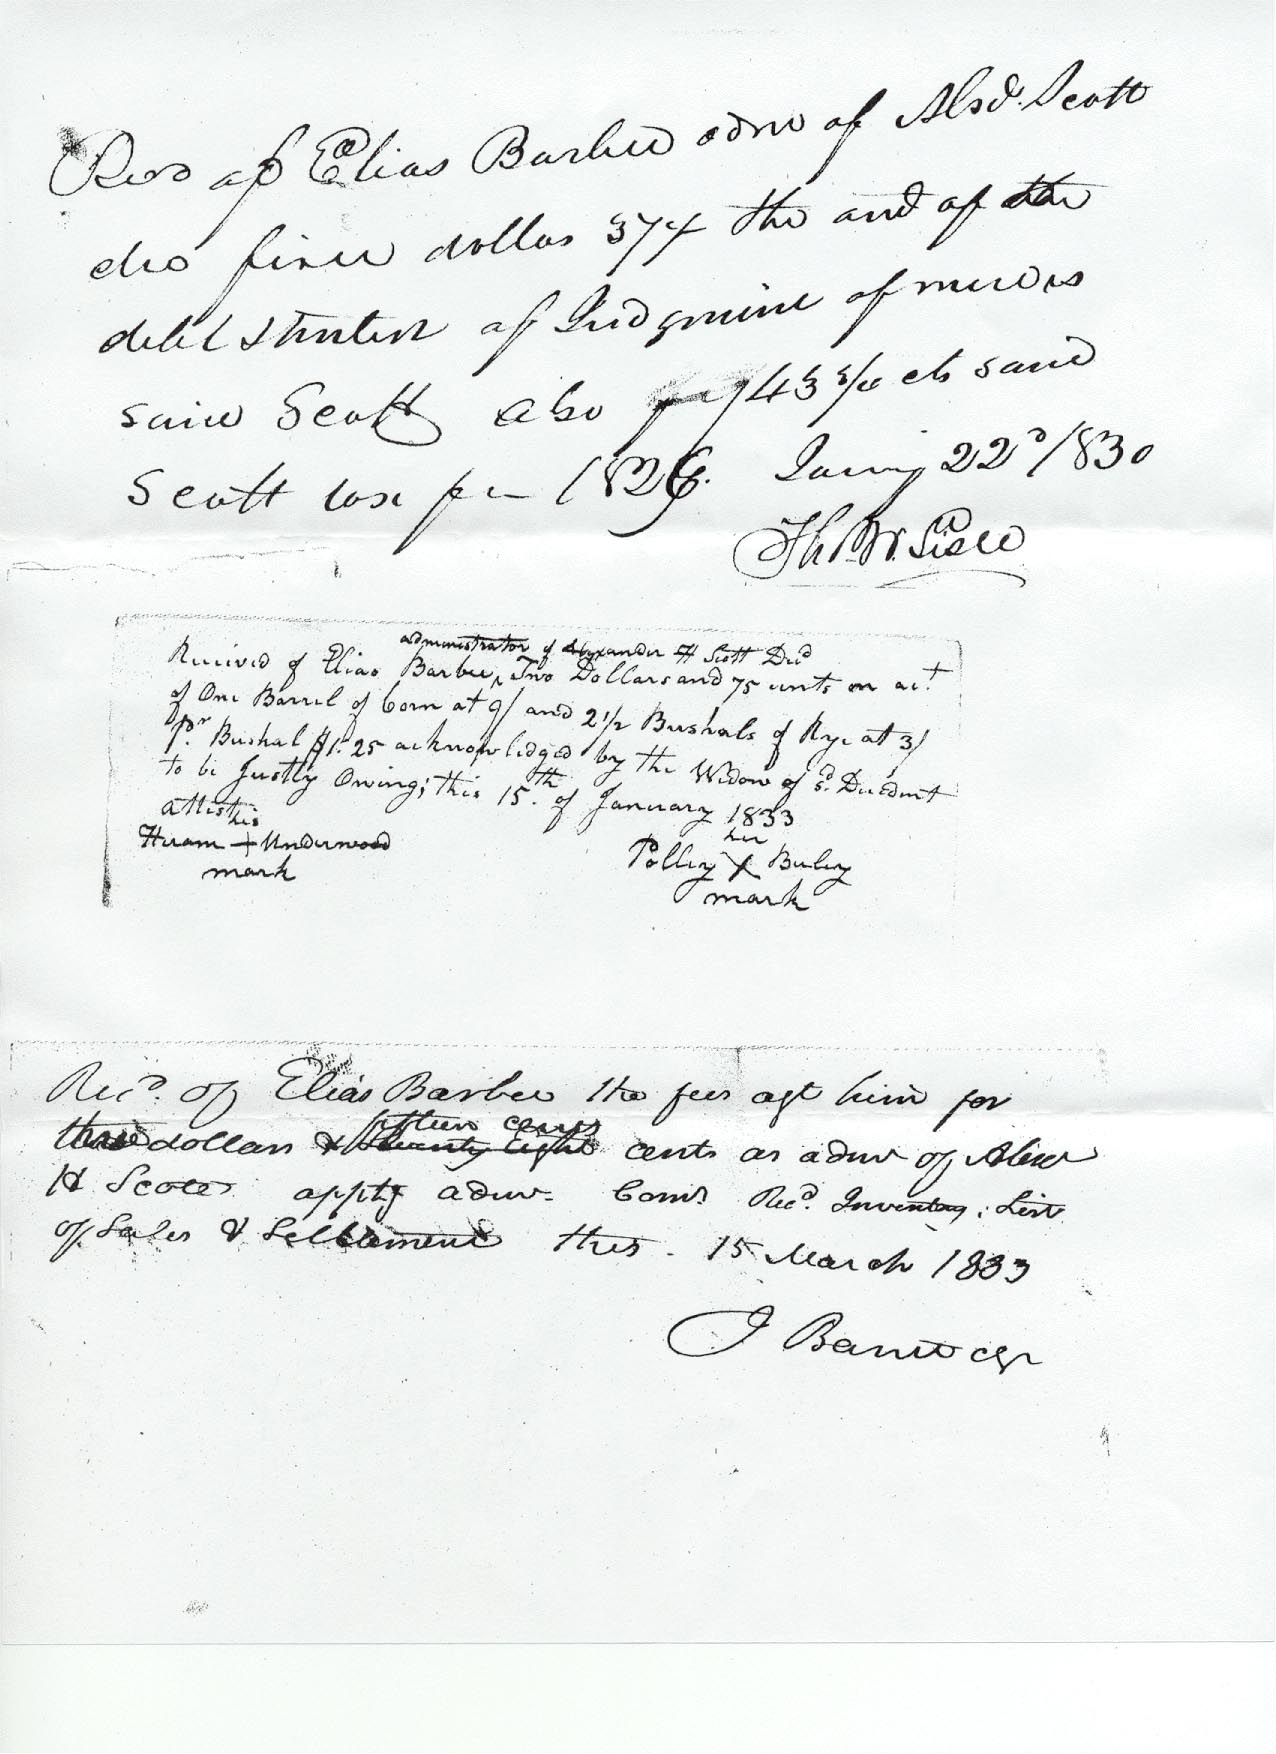 Recd of Elias Barbee adm of Alxd. Scott
decd five dollars 37½ the amt of the
debt & Interest of Judgment of
said Scott also 43 ¾ cts said
Scott tax for 1826. 22d 1830
Tho. W.
administrator of Alexander H Scott Decd
Received of Elias Barbee, Two Dollars and 75 cents on act
of One Barrel of Corn at 9/ and 2 1/2 Bushals of Rye at 3/
Pr. Bushal $1.25 acknowledged by the Widow of sd. Decedent
to be Justly Owing; this 15th. of January 1833
Attest
his
Hiram + Underwood
mark
her
Polley X Buley
mark
Recd. of Elias Barbee the fees agt him for
fifteen cents
three dollars & cents as admr of Alexr
H Scott apptg admr. Comrs Recd. Inventory, List
of Sales & Settlement this 15 March 1833
J Barrett